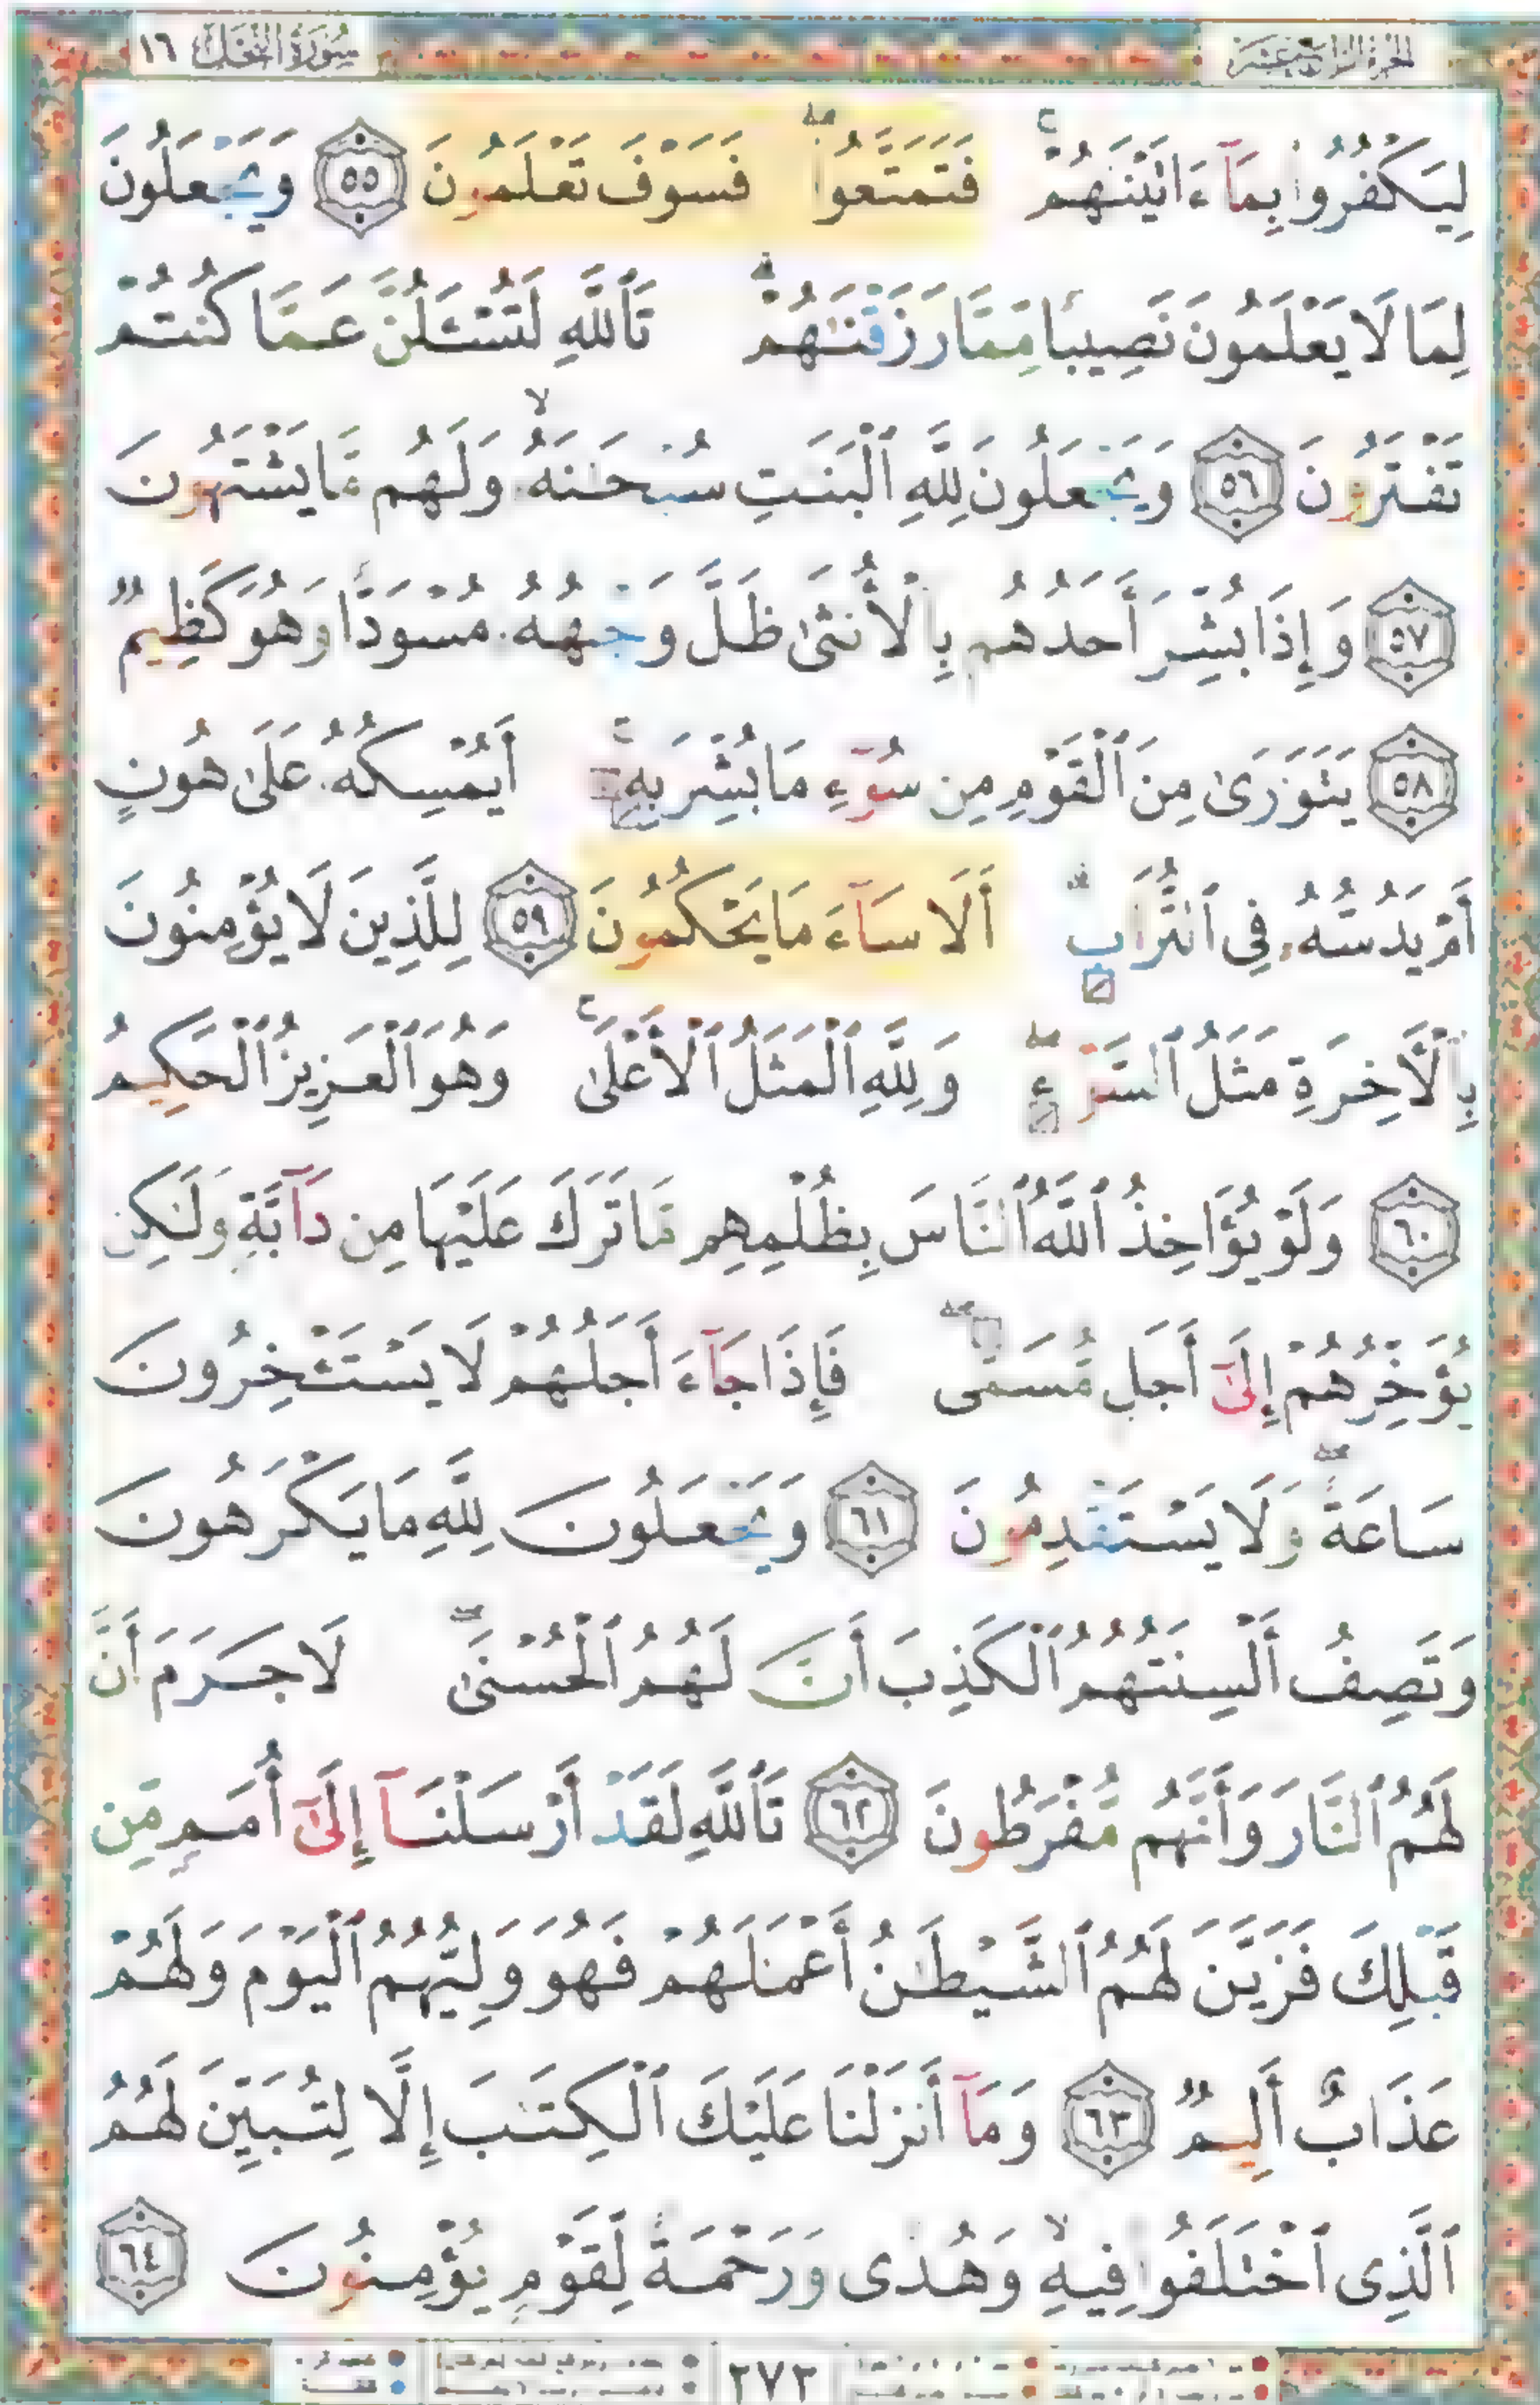 سُورَةُ النَّحْلِ ١٦
لِيَكْفُرُوا۟ بِمَآ ءَاتَيْنَٰهُمْ ۚ فَتَمَتَّعُوا۟ ۖ فَسَوْفَ تَعْلَمُونَ ٥٥ وَيَجْعَلُونَ
لِمَا لَا يَعْلَمُونَ نَصِيبًا مِّمَّا رَزَقْنَٰهُمْ ۗ تَٱللَّهِ لَتُسْـَٔلُنَّ عَمَّا كُنتُمْ
تَفْتَرُونَ ٥٦ وَيَجْعَلُونَ لِلَّهِ ٱلْبَنَٰتِ سُبْحَٰنَهُۥ ۙ وَلَهُم مَّا يَشْتَهُونَ
٥٧ وَإِذَا بُشِّرَ أَحَدُهُم بِٱلْأُنثَىٰ ظَلَّ وَجْهُهُۥ مُسْوَدًّا وَهُوَ كَظِيمٌ
٥٨ يَتَوَٰرَىٰ مِنَ ٱلْقَوْمِ مِن سُوٓءِ مَا بُشِّرَ بِهِۦٓ ۚ أَيُمْسِكُهُۥ عَلَىٰ هُونٍ
أَمْ يَدُسُّهُۥ فِى ٱلتُّرَابِ ۗ أَلَا سَآءَ مَا يَحْكُمُونَ ٥٩ لِلَّذِينَ لَا يُؤْمِنُونَ
بِٱلْـَٔاخِرَةِ مَثَلُ ٱلسَّوْءِ ۖ وَلِلَّهِ ٱلْمَثَلُ ٱلْأَعْلَىٰ ۚ وَهُوَ ٱلْعَزِيزُ ٱلْحَكِيمُ
٦٠ وَلَوْ يُؤَاخِذُ ٱللَّهُ ٱلنَّاسَ بِظُلْمِهِم مَّا تَرَكَ عَلَيْهَا مِن دَآبَّةٍ وَلَٰكِن
يُؤَخِّرُهُمْ إِلَىٰٓ أَجَلٍ مُّسَمًّى ۖ فَإِذَا جَآءَ أَجَلُهُمْ لَا يَسْتَـْٔخِرُونَ
سَاعَةً ۖ وَلَا يَسْتَقْدِمُونَ ٦١ وَيَجْعَلُونَ لِلَّهِ مَا يَكْرَهُونَ
وَتَصِفُ أَلْسِنَتُهُمُ ٱلْكَذِبَ أَنَّ لَهُمُ ٱلْحُسْنَىٰ ۖ لَا جَرَمَ أَنَّ
لَهُمُ ٱلنَّارَ وَأَنَّهُم مُّفْرَطُونَ ٦٢ تَٱللَّهِ لَقَدْ أَرْسَلْنَآ إِلَىٰٓ أُمَمٍ مِّن
قَبْلِكَ فَزَيَّنَ لَهُمُ ٱلشَّيْطَٰنُ أَعْمَٰلَهُمْ فَهُوَ وَلِيُّهُمُ ٱلْيَوْمَ وَلَهُمْ
عَذَابٌ أَلِيمٌ ٦٣ وَمَآ أَنزَلْنَا عَلَيْكَ ٱلْكِتَٰبَ إِلَّا لِتُبَيِّنَ لَهُمُ
ٱلَّذِى ٱخْتَلَفُوا۟ فِيهِ ۙ وَهُدًى وَرَحْمَةً لِّقَوْمٍ يُؤْمِنُونَ ٦٤
٢٧٣